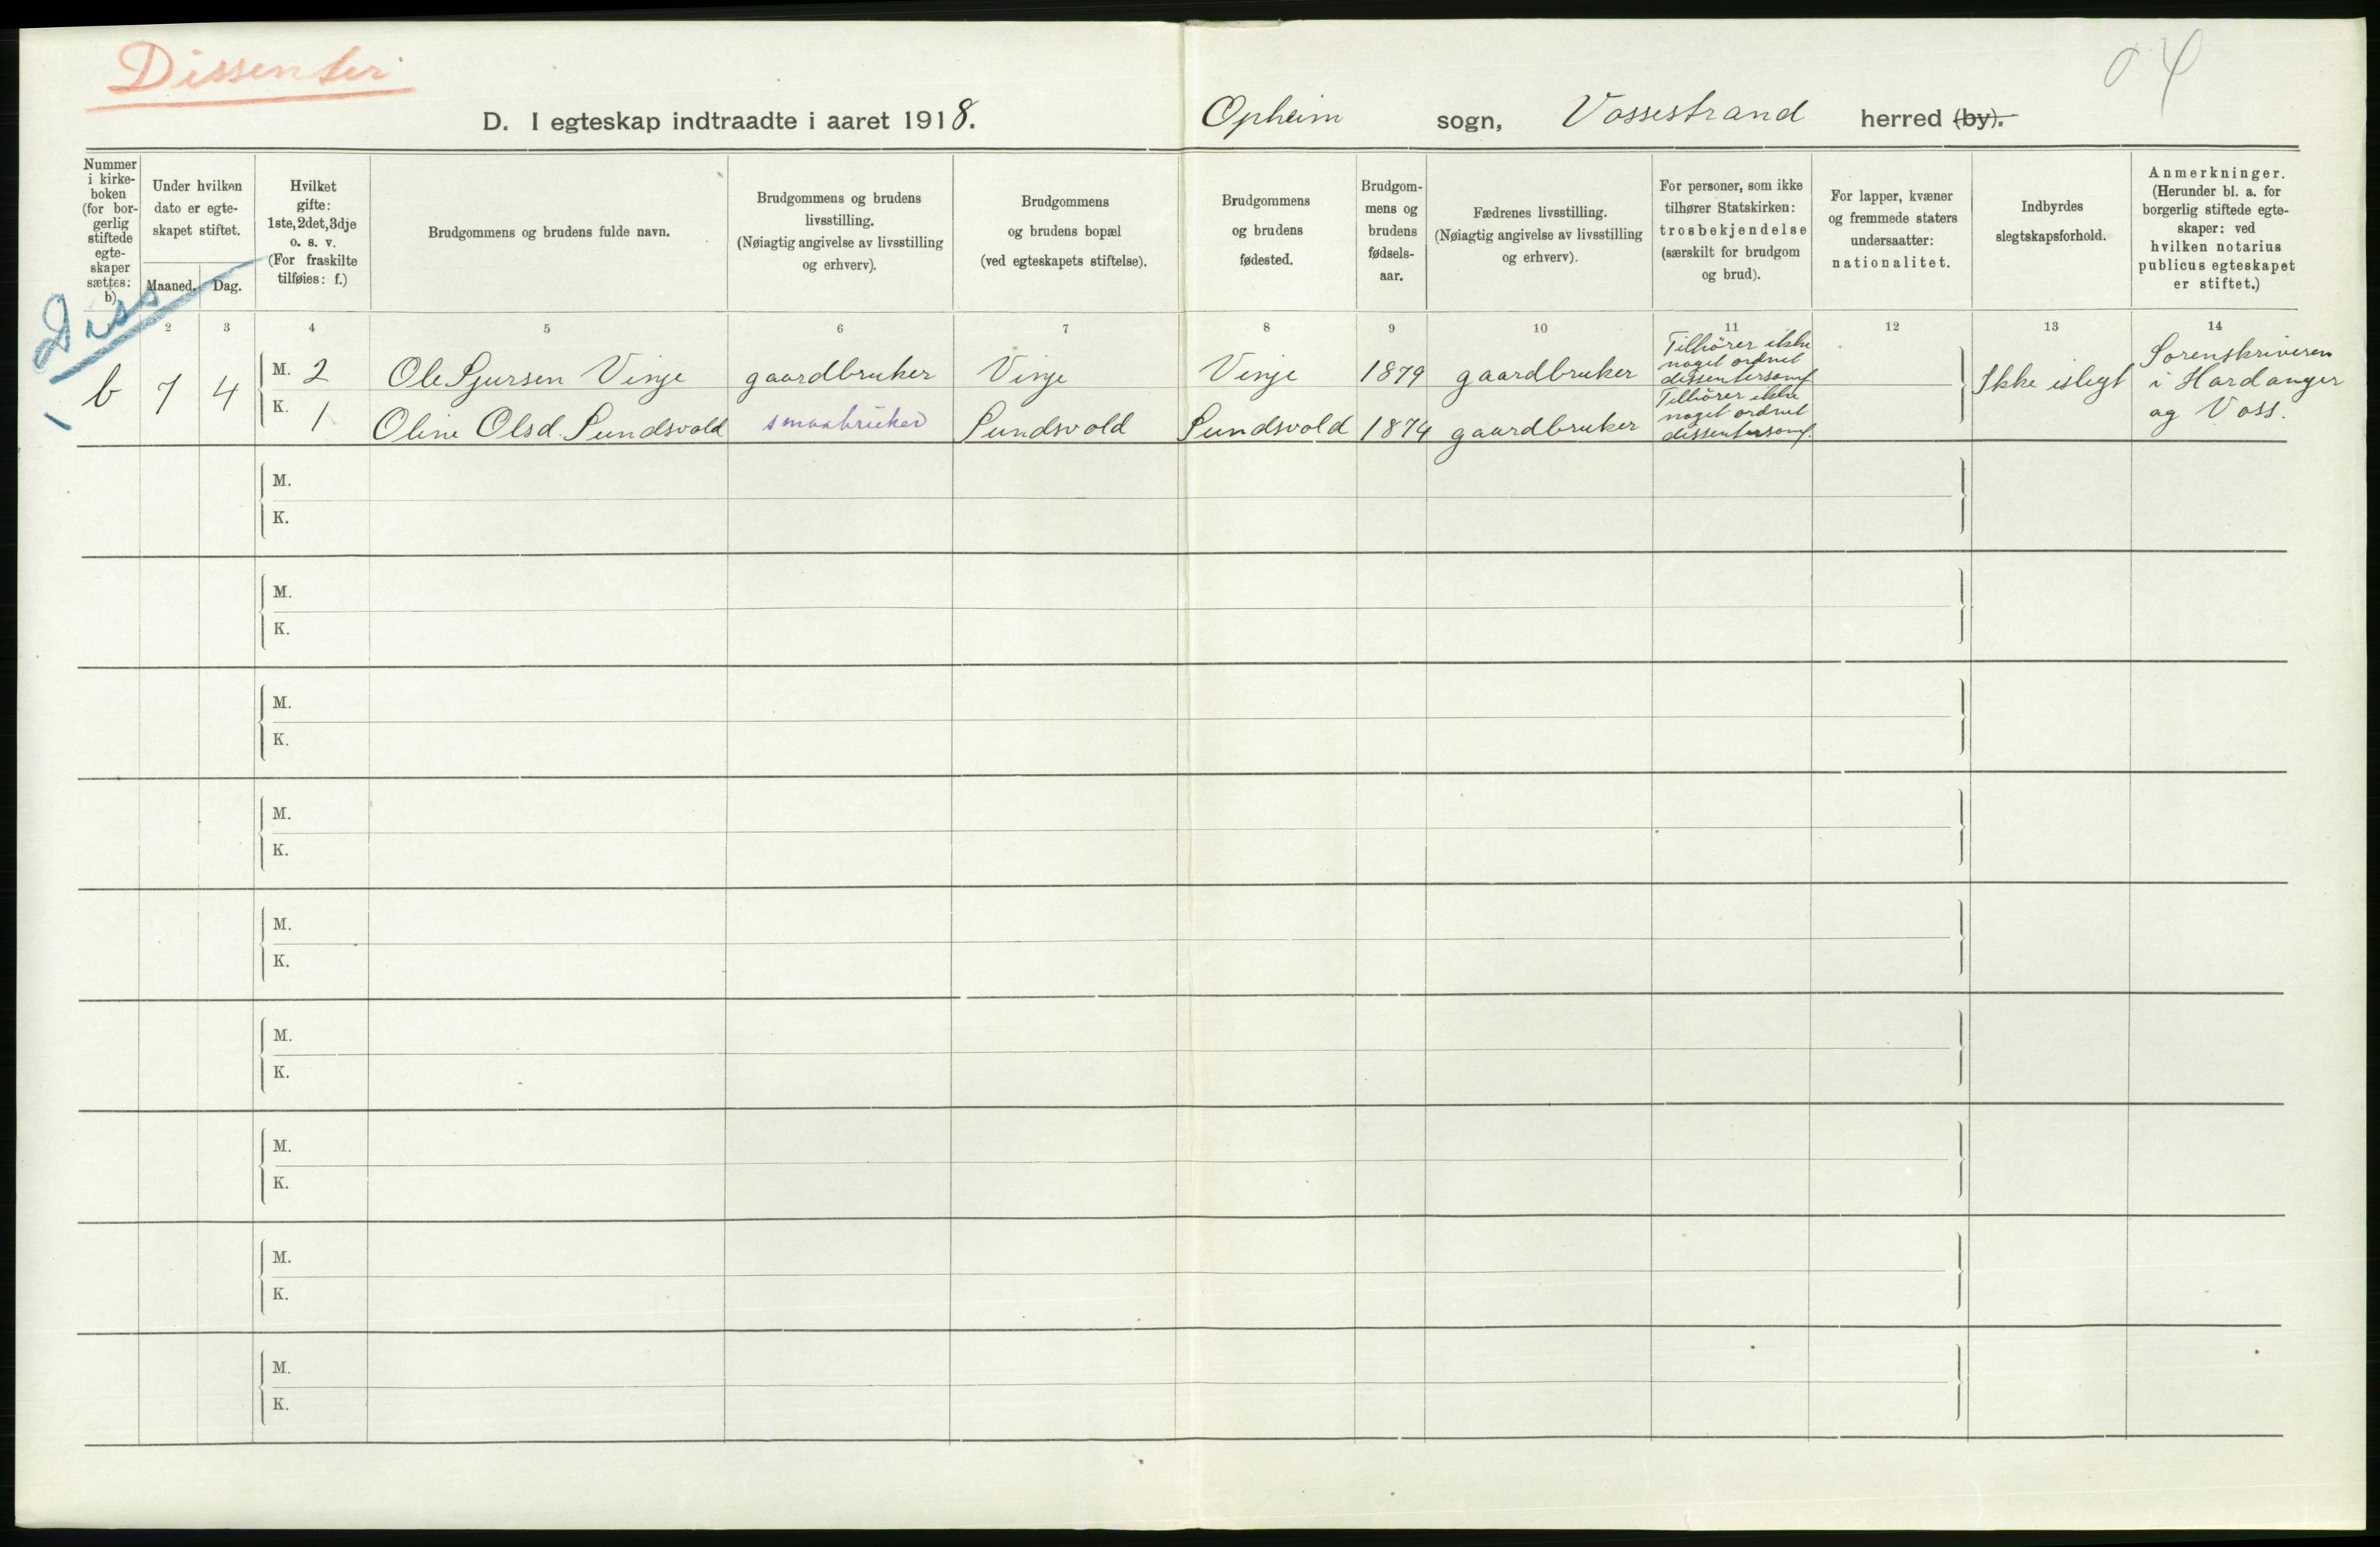 Dissenter
04
D. I egteskap indtraadte i aaret 1918.
Opheim sogn, Vossestrand herred (by).
Nummer i kirke-boken (for bor-gerlig stiftede egte-skaper sættes: b)
Under hvilken dato er egte-skapet stiftet.
Maaned.
Dag.
Hvilket gifte: 1ste, 2det, 3dje o. s. v. (For fraskilte tilføies: f.)
Brudgommens og brudens fulde navn.
Brudgommens og brudens livsstilling. (Nøiagtig angivelse av livsstilling og erhverv).
Brudgommens og brudens bopæl (ved egteskapets stiftelse).
Brudgommens og brudens fødested.
Brudgom-mens og brudens fødsels-aar.
Fædrenes livsstilling. (Nøiagtig angivelse av livsstilling og erhverv).
For personer, som ikke tilhører Statskirken: trosbekjendelse (særskilt for brudgom og brud).
For lapper, kvæner og fremmede staters undersaatter: nationalitet.
Indbyrdes slegtskapsforhold.
Anmerkninger. (Herunder bl. a. for borgerlig stiftede egte-skaper: ved hvilken notarius publicus egteskapet er stiftet.)
Diss
2 3 4 5 6 7 8 9 10 11 12 13 14
1 b 7 4
M. 2 Ole Sjursen Vinje gaardbruker Vinje Vinje 1879 gaardbruker Tilhører ikke noget ordnet dissentersamf.
K. 1 Oline Olsd. Sundsvold smaabruker Sundsvold Sundsvold 1874 gaardbruker Tilhører ikke noget ordnet dissentersamf.
Ikke i slegt
Sorenskriveren i Hardanger og Voss.
M.
K.
M.
K.
M.
K.
M.
K.
M.
K.
M.
K.
M.
K.
M.
K.
M.
K.